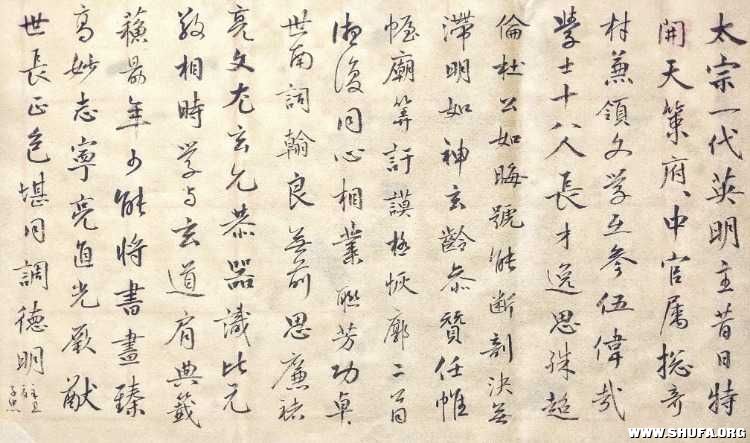 太宗一代英明主昔日特
開天策府、中官属揔奇
材兼領文学互参伍偉哉
學士十八人長才逸思殊超
倫杜公如晦號能断剖决無
滯明如神玄齡叅贊任帷
幄廟筭訏謨極恢廓二
同心相業聯芳功卓
世南詞翰良無前思廉褚
亮文尤玄允恭器識比元
敬相時学与玄道肩典籤
蘓勗年少能将書畫臻
高妙志寧亮直光厥猷
世長正色堪同調德明
WWW.SHUFA.ORG